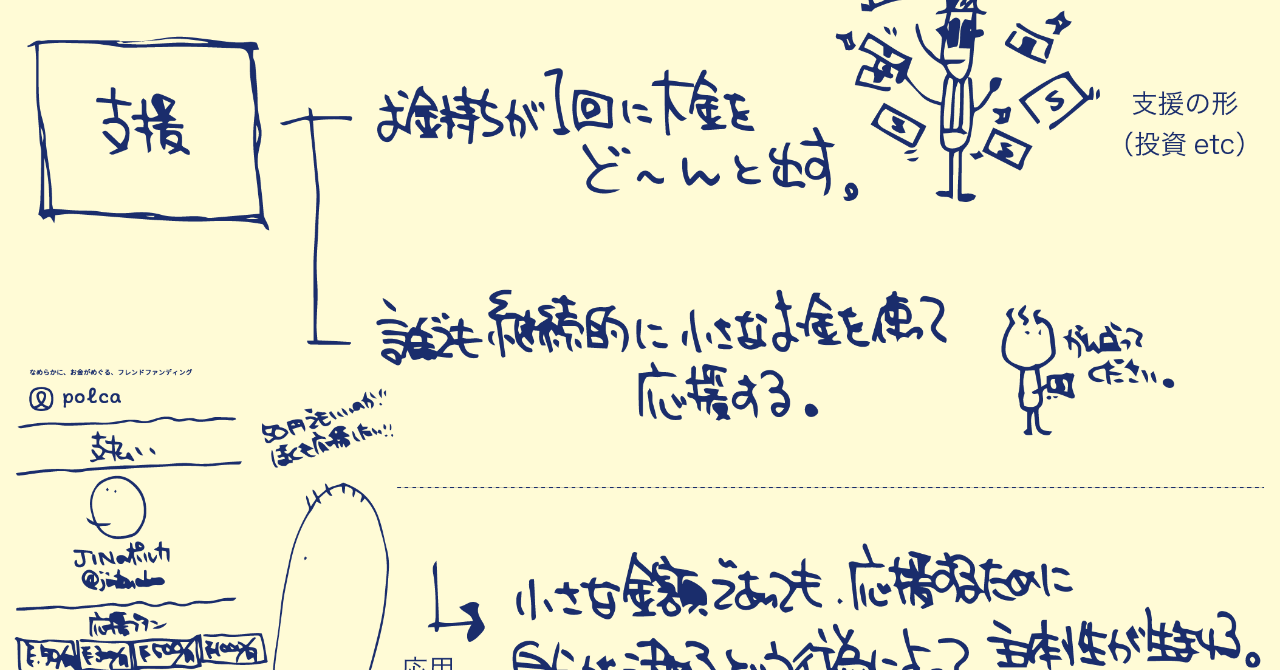 支援
お金持ちが1回に大金を
ど〜んと出す。
支援の形
（投資 etc）
誰でも継続的に小さなお金を使って
応援する。
がん張って
ください。
なめらかに、お金がめぐる、フレンドファンディング
polca
支払い
50円でもいいのか!!
ぼくも応援したい!!
JINのポルカ
応援プラン
小さな金額であっても、応援するために
応用
自らが決めるという行為によって 主体性が生まれる。